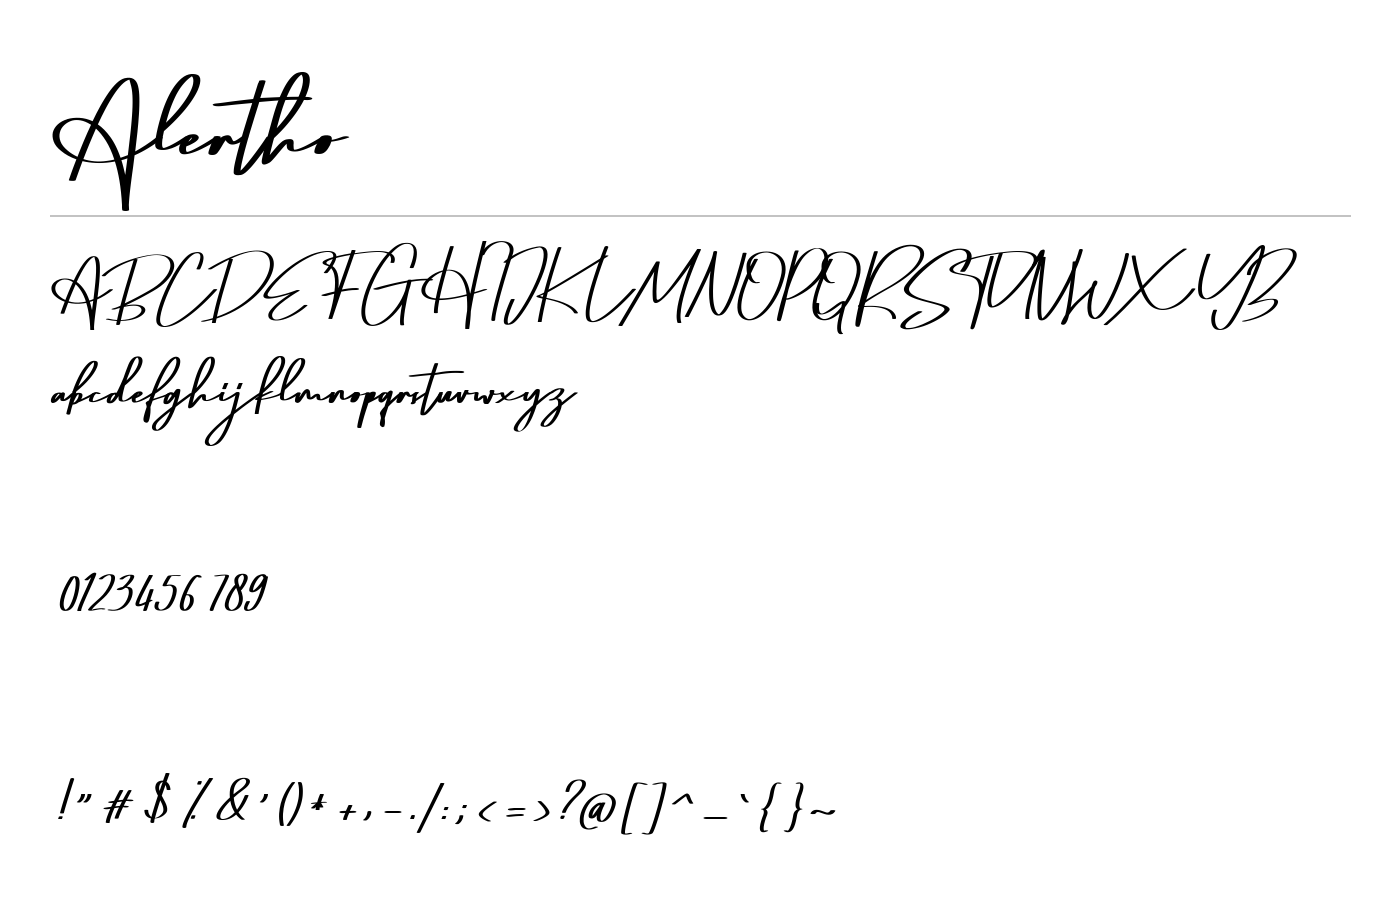 Alertho
ABCDEFGHIJKLMNOPQRSTUVWXYZ
abcdefghijklmnopqrstuvwxyz
0123456789
!"#$%&'()*+,-./:;<=>?@[]^_`{}~